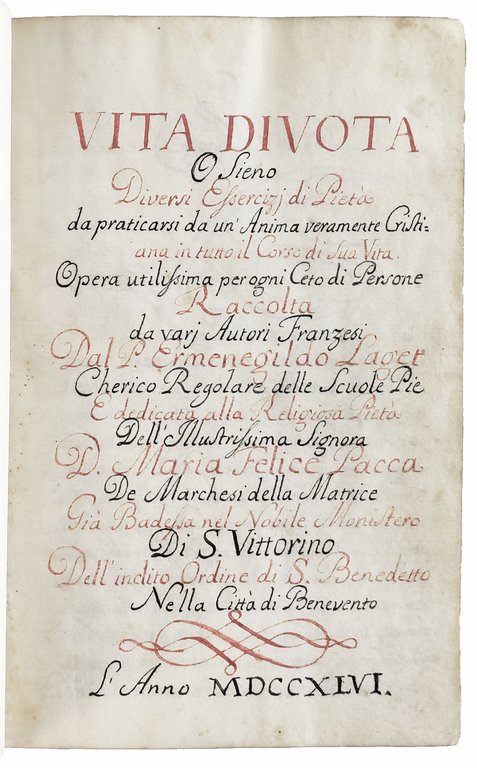 VITA DIVOTA
O Sieno
Diversi Essercizj di Pietà
da praticarsi da un' Anima veramente Cristi=
ana in tutto il Corso di Sua Vita.
Opera utilissima per ogni Ceto di Persone
Raccolta
da varj Autori Franzesi
Dal P. Ermenegildo Laget
Cherico Regolare delle Scuole Pie
E dedicata alla Religiosa Pietà
Dell'Illustrissima Signora
D. Maria Felice Pacca
De Marchesi della Matrice
Già Badessa nel Nobile Monistero
Di S. Vittorino
Dell'inclito Ordine di S. Benedetto
Nella Città di Benevento
L'Anno MDCCXLVI.